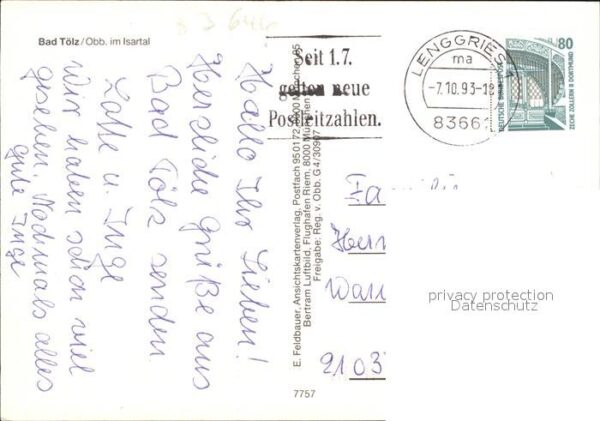 Bad Tölz / Obb. im Isartal
Hallo Ihr Lieben!
Herzliche Grüße aus
Bad Tölz senden
Lotte u. Inge
Wir haben schon viel
gesehen. Nochmals alles
gute Inge
E. Feldbauer, Ansichtskartenverlag, Postfach 950172, 8000 München 95
Bertram Luftbild, Flughafen Riem, 8000 München
Freigabe: Reg. v. Obb. G 4/30907
7757
Seit 1.7.
gelten neue
Postleitzahlen.
LENGGRIES 1
ma
-7.10.93-18
83661
80
DEUTSCHE BUNDESPOST
ZECHE ZOLLERN II DORTMUND
Fa
Herr
Wan
2103
privacy protection
Datenschutz